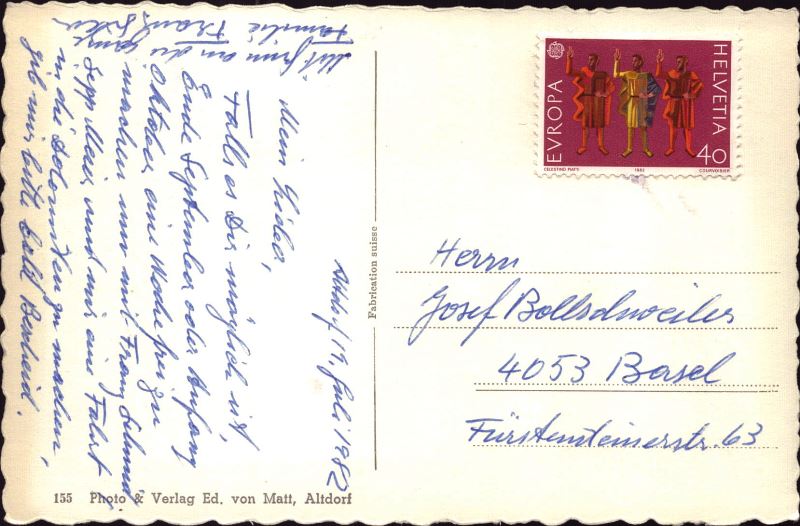 Altdorf 19. Juli 1982
Mein Lieber,
Falls es Dir möglich ist,
Ende September oder Anfang
Oktober eine Woche frei zu
machen mit Franz Schmid
Sepp und mir eine Fahrt
in die Dolomiten zu machen,
gib mir bitte bald Bescheid.
an die ganze
Familie
Fabrication suisse
155 Photo & Verlag Ed. von Matt, Altdorf
EVROPA
HELVETIA
40
CELESTINO PIATTI 1982 COURVOISIER
Herrn
Josef Bollschweiler
4053 Basel
Fürstensteinerstr. 63